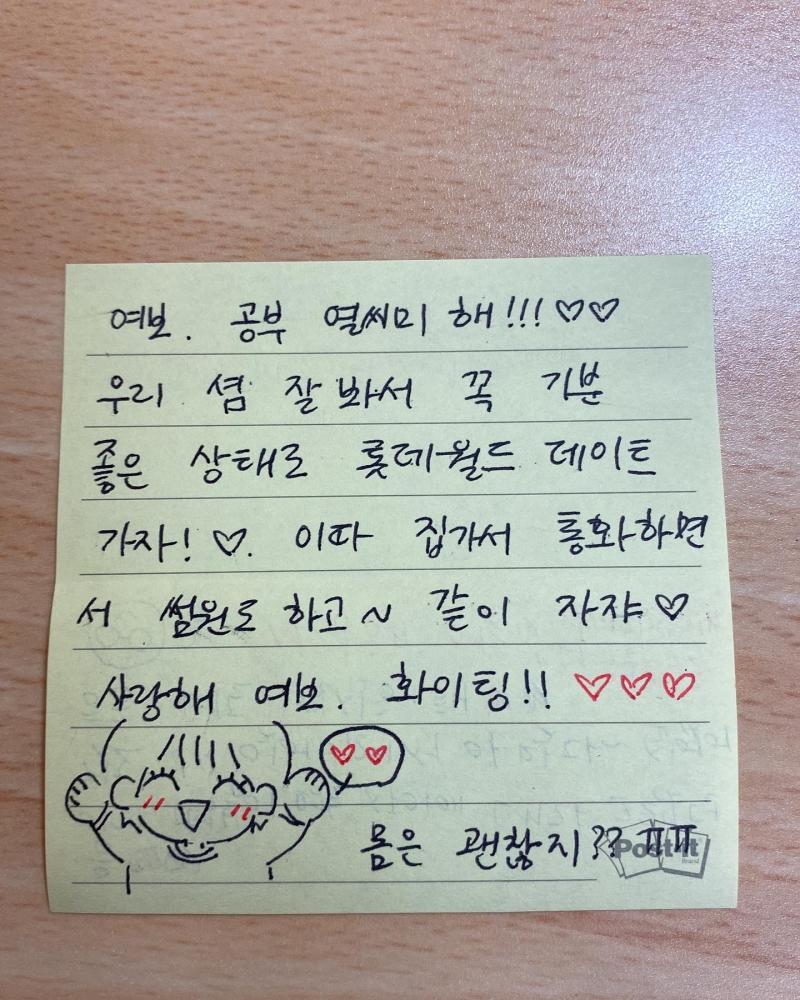 여보. 공부 열씨미 해!!! ♡♡
우리 셤 잘 봐서 꼭 기분
좋은 상태로 롯데월드 데이트
가자! ♡. 이따 집가서 통화하면
서 썸원도 하고~ 같이 자쟈♡
사랑해 여보. 화이팅!! ♡♡♡
몸은 괜찮지?? ㅠㅠ
Post-it
Brand